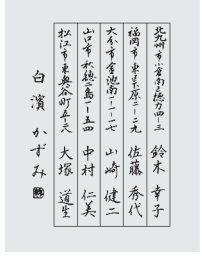 北九州市小倉南区徳力四ー三 鈴木 幸子
福岡市東区原二ー二九 佐藤 秀代
大分市金池南一ー一七 山崎 健二
山口市秋穂二島一ー五四 中村 仁美
松江市東奥谷町五ー六 大塚 道生
白濱 かずみ